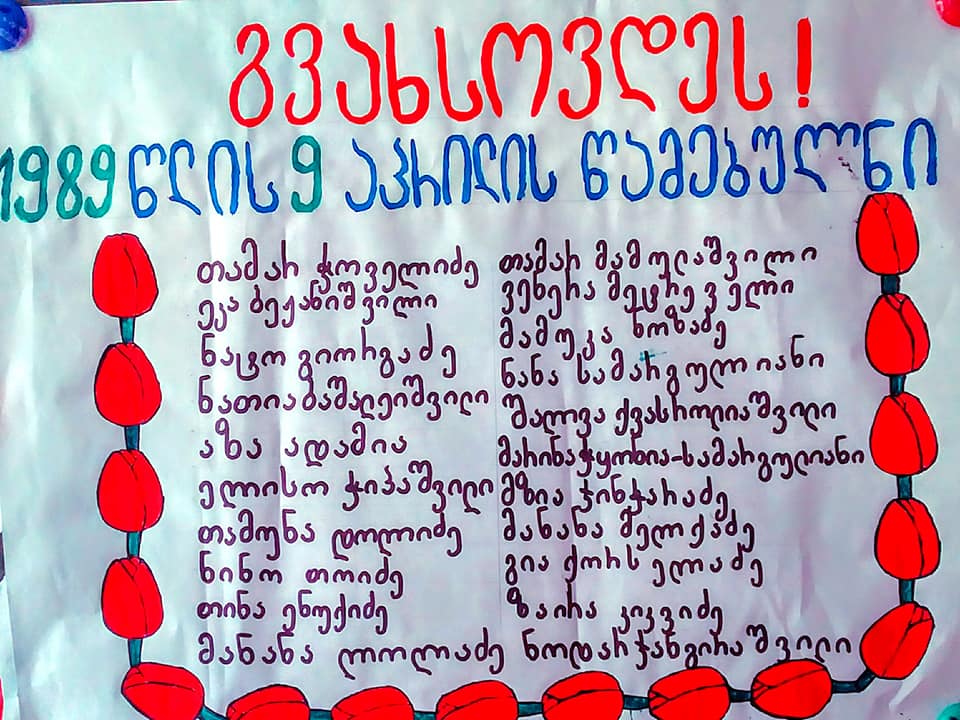 გვახსოვდეს!
1989 წლის 9 აპრილის წამებულნი
თამარ ჭოველიძე
ეკა ბეჟანიშვილი
ნატო გიორგაძე
ნათია ბაშალეიშვილი
აზა ადამია
ელისო ჭიპაშვილი
თამუნა დოლიძე
ნინო თოიძე
თინა ენუქიძე
მანანა ლოლაძე
თამარ მამულაშვილი
ვენერა მეტრეველი
მამუკა ნოზაძე
ნანა სამარგულიანი
შალვა ქვასროლიაშვილი
მარინა ჭყონია-სამარგულიანი
მზია ჯინჭარაძე
მანანა მელქაძე
გია ქორსელაძე
ზაირა კიკვიძე
ნოდარ ჯანგირაშვილი